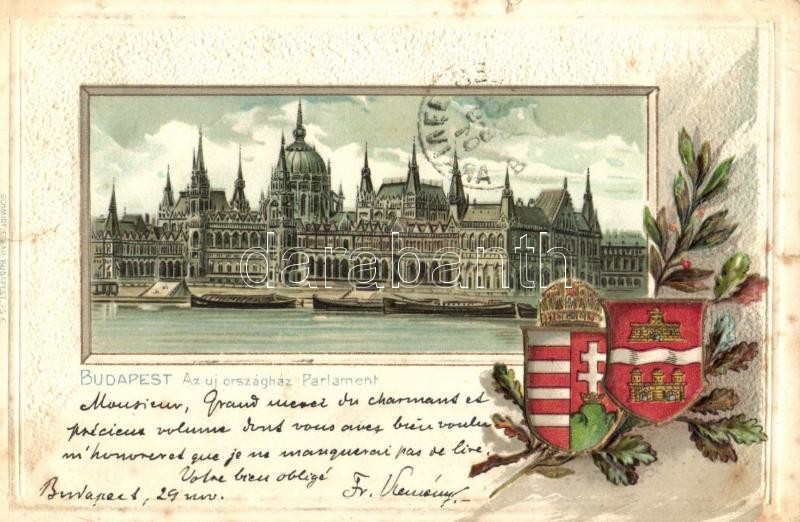 darabanth
BUDAPEST Az uj országház Parlament
Monsieur, Grand merci du charmant et
précieux volume dont vous avez bien voulu
m'honorer et que je ne manquerai pas de lire.
Votre bien obligé
Budapest, 29 nov. Fr. Kemény